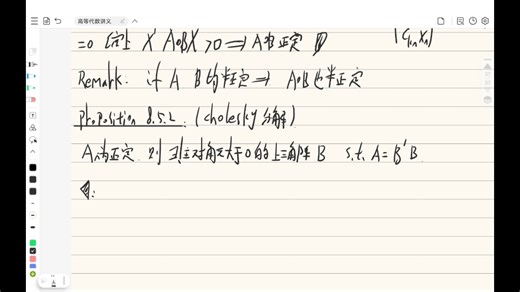 高等代数讲义
=0 综上 X'A∘BX>0 ⟹ A∘B 正定
Remark. if A B 均半正定 ⟹ A∘B 也半正定
Proposition 8.5.2. (Cholesky分解)
A为正定. 则 ∃主对角元大于0的上三角阵 B s.t. A=B'B.